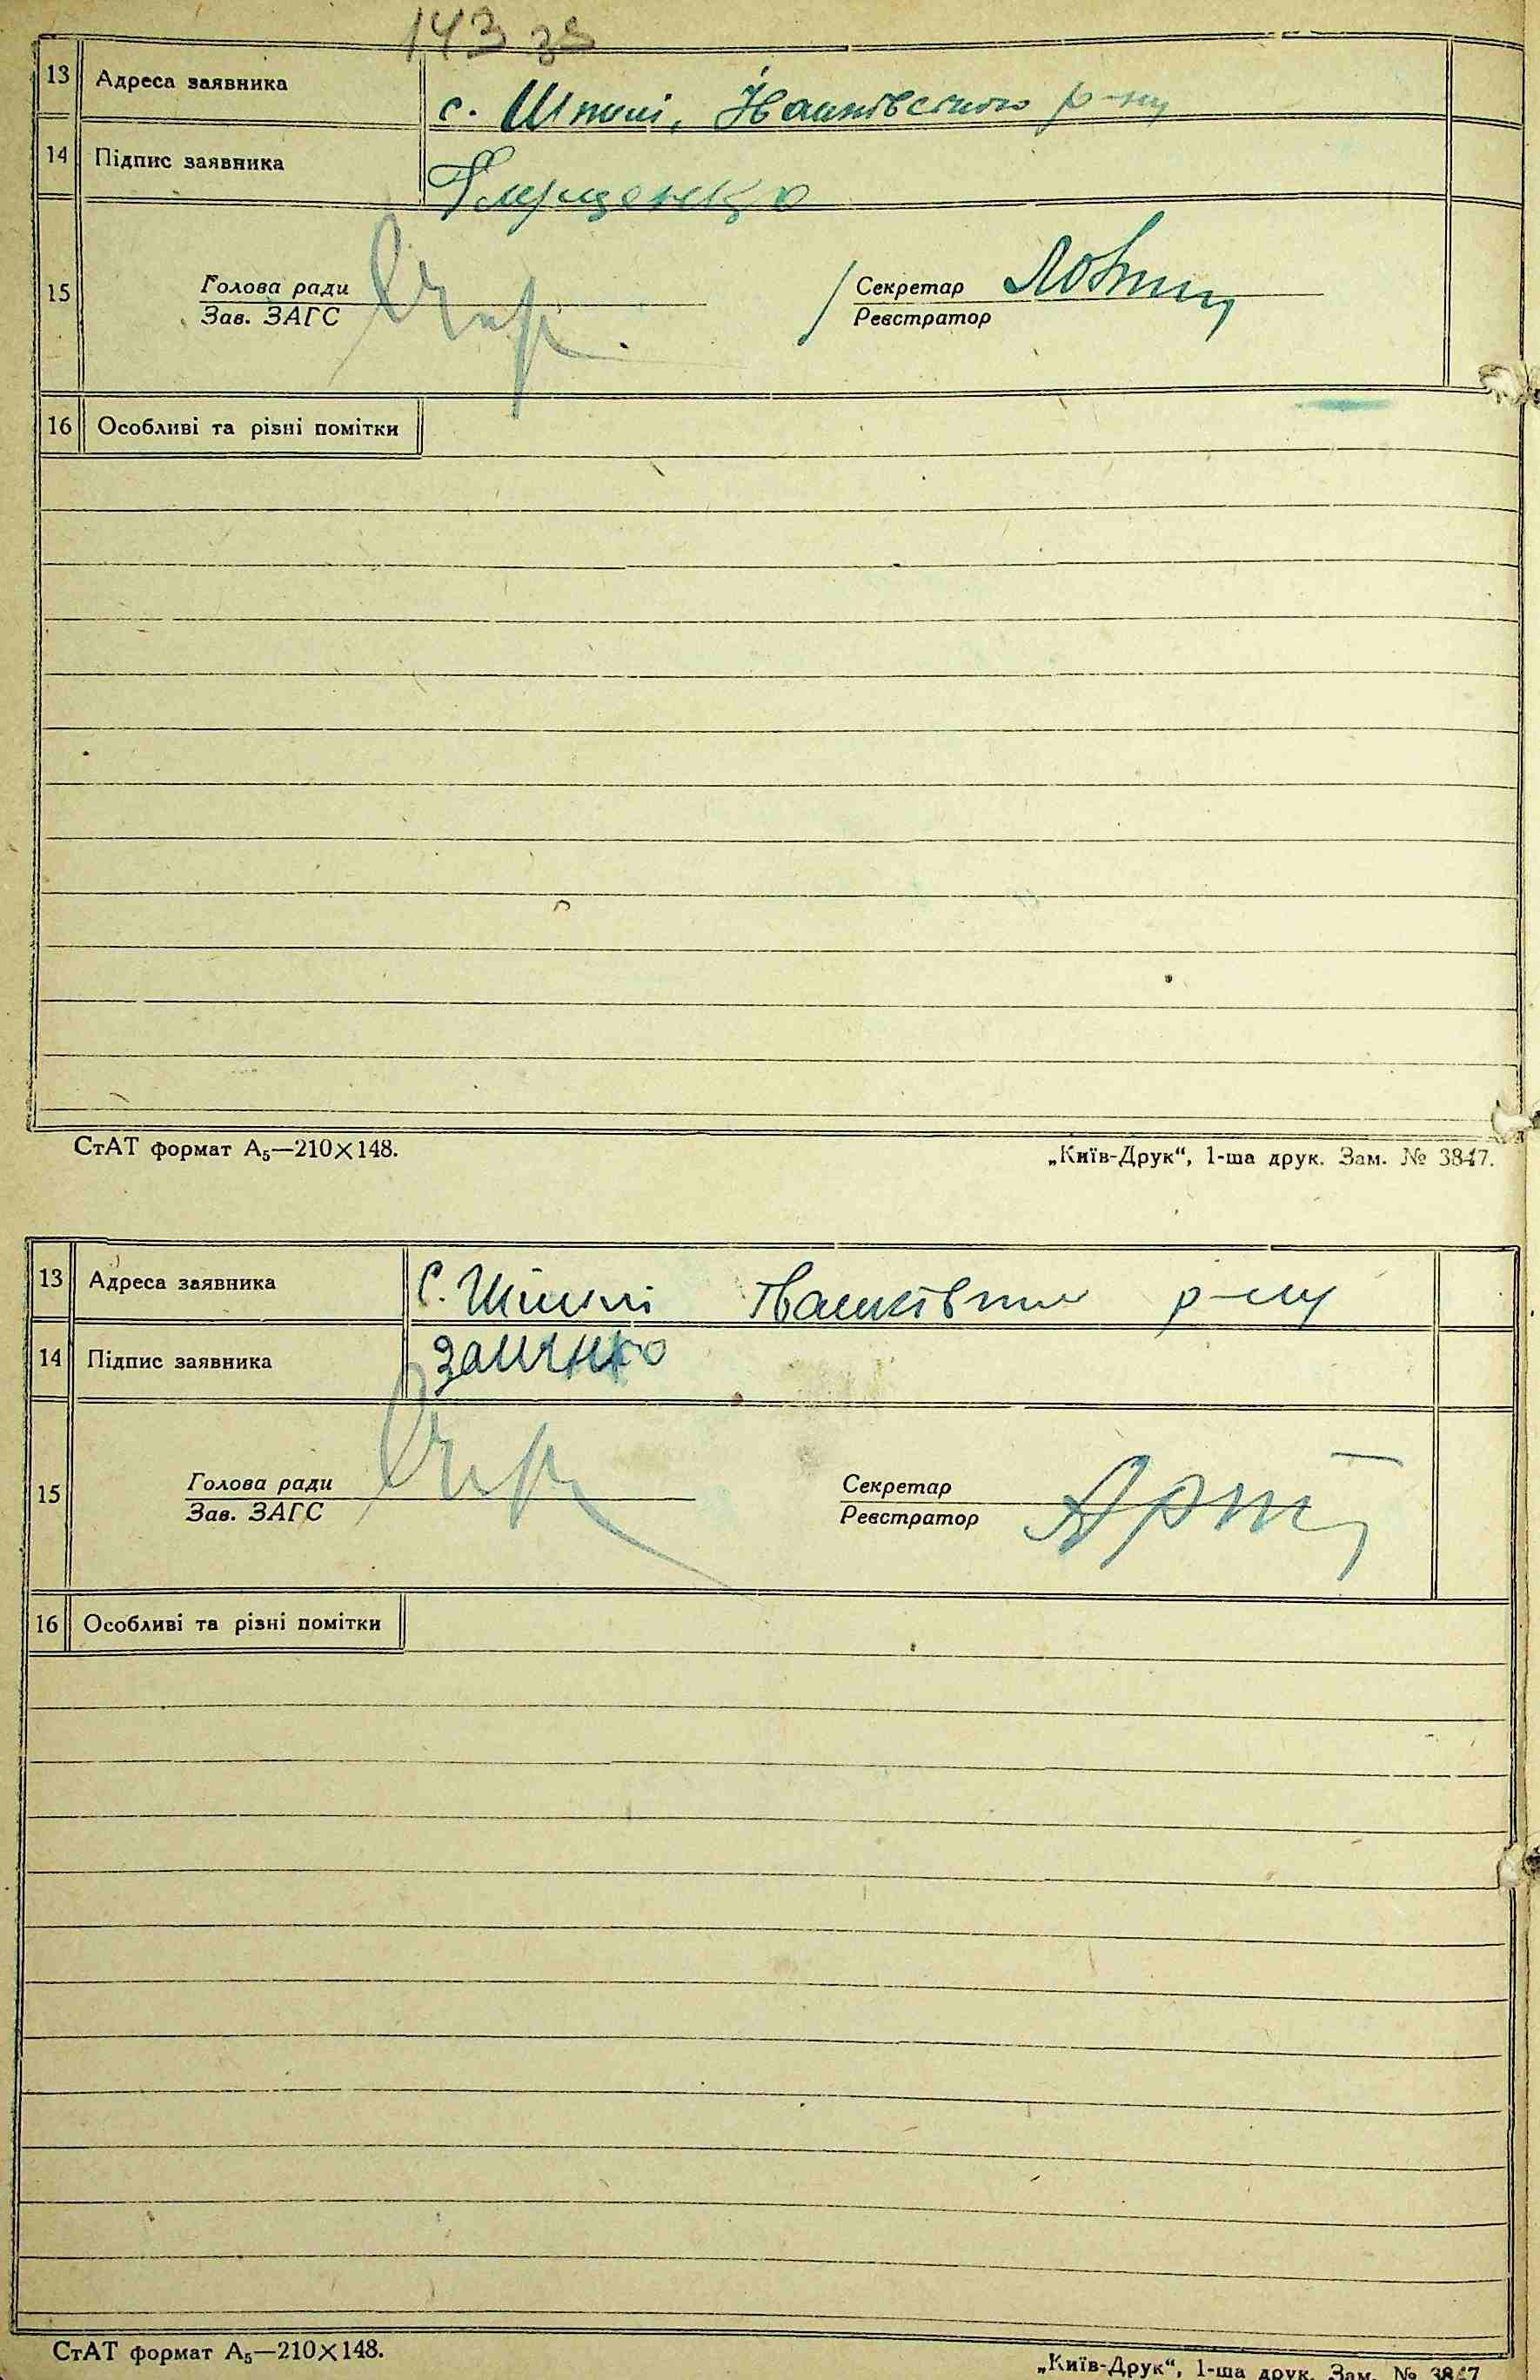 143 зв
13 Адреса заявника с. Шпилі, Іванківського р-ну
14 Підпис заявника
15 Голова ради Секретар
Зав. ЗАГС Реєстратор
16 Особливі та різні помітки
СтАТ формат А₅—210×148. „Київ-Друк“, 1-ша друк. Зам. № 3847.
13 Адреса заявника С. Шпилі Іванківськ р-ну
14 Підпис заявника
15 Голова ради Секретар
Зав. ЗАГС Реєстратор
16 Особливі та різні помітки
СтАТ формат А₅—210×148. „Київ-Друк“, 1-ша друк. Зам. № 3847